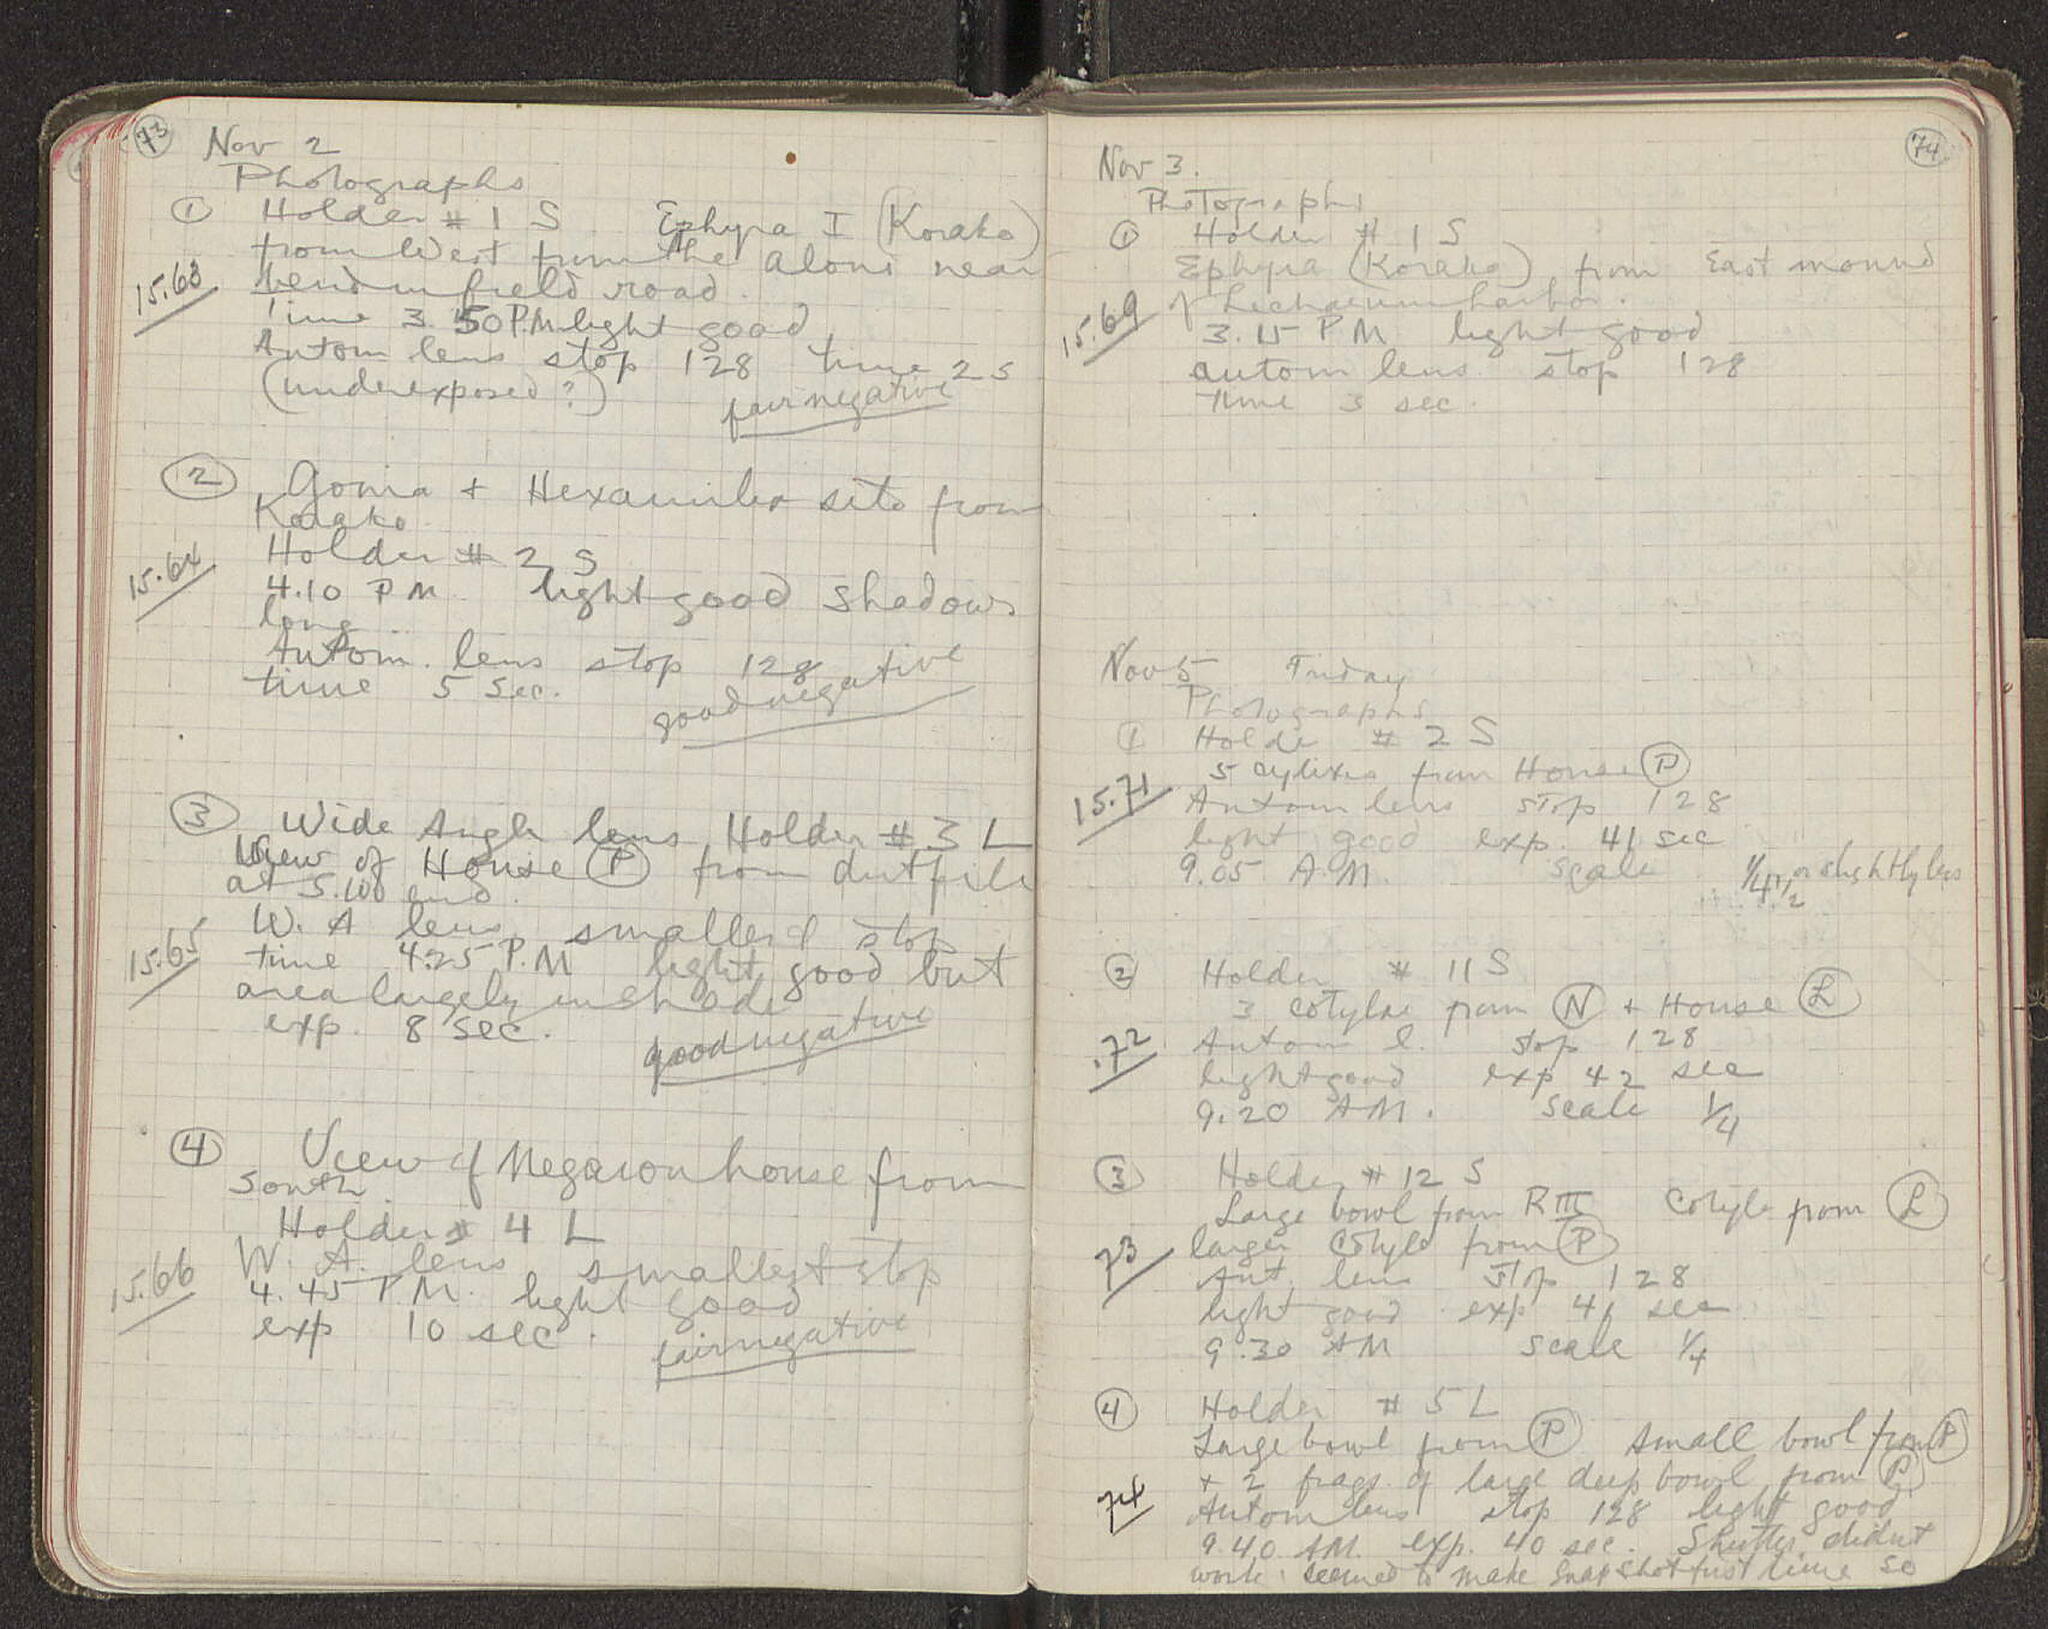 73
Nov 2
Photographs
① Holder # 1 S Ephyra I (Korako)
from West from the aloni near
bend in field road.
15.63
Time 3.50 P.M. light good
Autom lens stop 128 time 2 s
(underexposed?)
fair negative
② Gonia + Hexamilia site from
Korako
Holder # 2 S
15.64
4.10 P M light good shadows
long
Autom. lens stop 128
time 5 sec.
good negative
③ Wide Angle lens Holder # 3 L
View of House Ⓟ from dirt pile
at S. end.
W. A lens smallest stop
15.65
time 4.25 P.M light good but
area largely in shade
exp. 8 sec.
good negative
④ View of Megaron house from
South
Holder # 4 L
W. A. lens smallest stop
15.66
4.45 P.M. light good
exp 10 sec.
fair negative
74
Nov 3.
Photographs
① Holder # 1 S
Ephyra (Korako) from East mound
of Lechaeum harbor.
15.69
3.15 P M light good
autom lens stop 128
time 3 sec.
Nov 5 Friday
Photographs
① Holder # 2 S
5 cylixes from House Ⓟ
15.71
Autom lens stop 128
light good exp. 41 sec
9.05 A.M. scale or slightly less
② Holder # 11 S
3 cotylae from Ⓝ + House Ⓛ
.72
Autom l. stop 128
light good exp 42 sec
9.20 AM. scale 1/4
③ Holder # 12 S
Large bowl from R III Cotyle from Ⓛ
73
larger cotyle from Ⓟ
Aut. lens stop 128
light good exp 41 sec
9.30 AM scale 1/4
④ Holder # 5 L
Large bowl from Ⓟ small bowl from Ⓟ
+ 2 frags of large deep bowl from Ⓟ
74
Autom lens stop 128 light good
9.40 AM. exp. 40 sec. Shutter didnt
work. seemed to make snapshot first time so